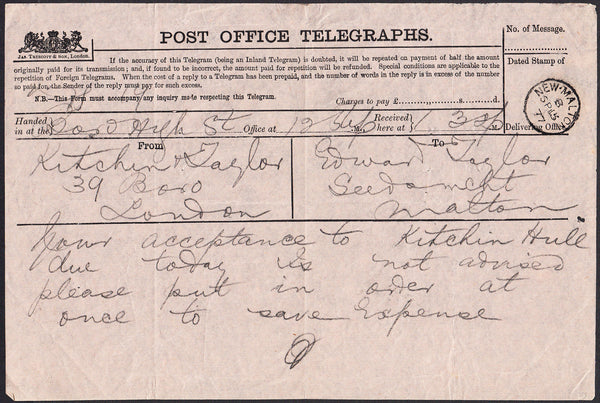 POST OFFICE TELEGRAPHS.
No. of Message.
Dated Stamp of
JAS. TRUSCOTT & SON, London.
If the accuracy of this Telegram (being an Inland Telegram) is doubted, it will be repeated on payment of half the amount
originally paid for its transmission; and, if found to be incorrect, the amount paid for repetition will be refunded. Special conditions are applicable to the
repetition of Foreign Telegrams. When the cost of a reply to a Telegram has been prepaid, and the number of words in the reply is in excess of the number
so paid for, the Sender of the reply must pay for such excess.
N.B.—This Form must accompany any inquiry made respecting this Telegram.
Charges to pay £ s. d.
NEW-MALTON
B
SP 15
77
Handed in at the Boro High St Office at 12 Received here at 1. M. Delivering Office
From To
Kitchin & Taylor Edward Taylor
39 Boro
London Malton
Your acceptance to Kitchin Hull
due today is not advised
please put in order at
once to save Expense